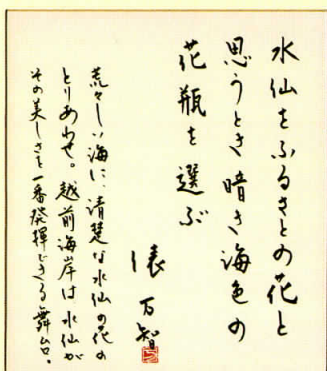 水仙をふるさとの花と
思うとき暗き海色の
花瓶を選ぶ
俵万智
荒々しい海に、清楚な水仙の花の
とりあわせ。越前海岸は水仙が
その美しさを一番発揮できる舞台。